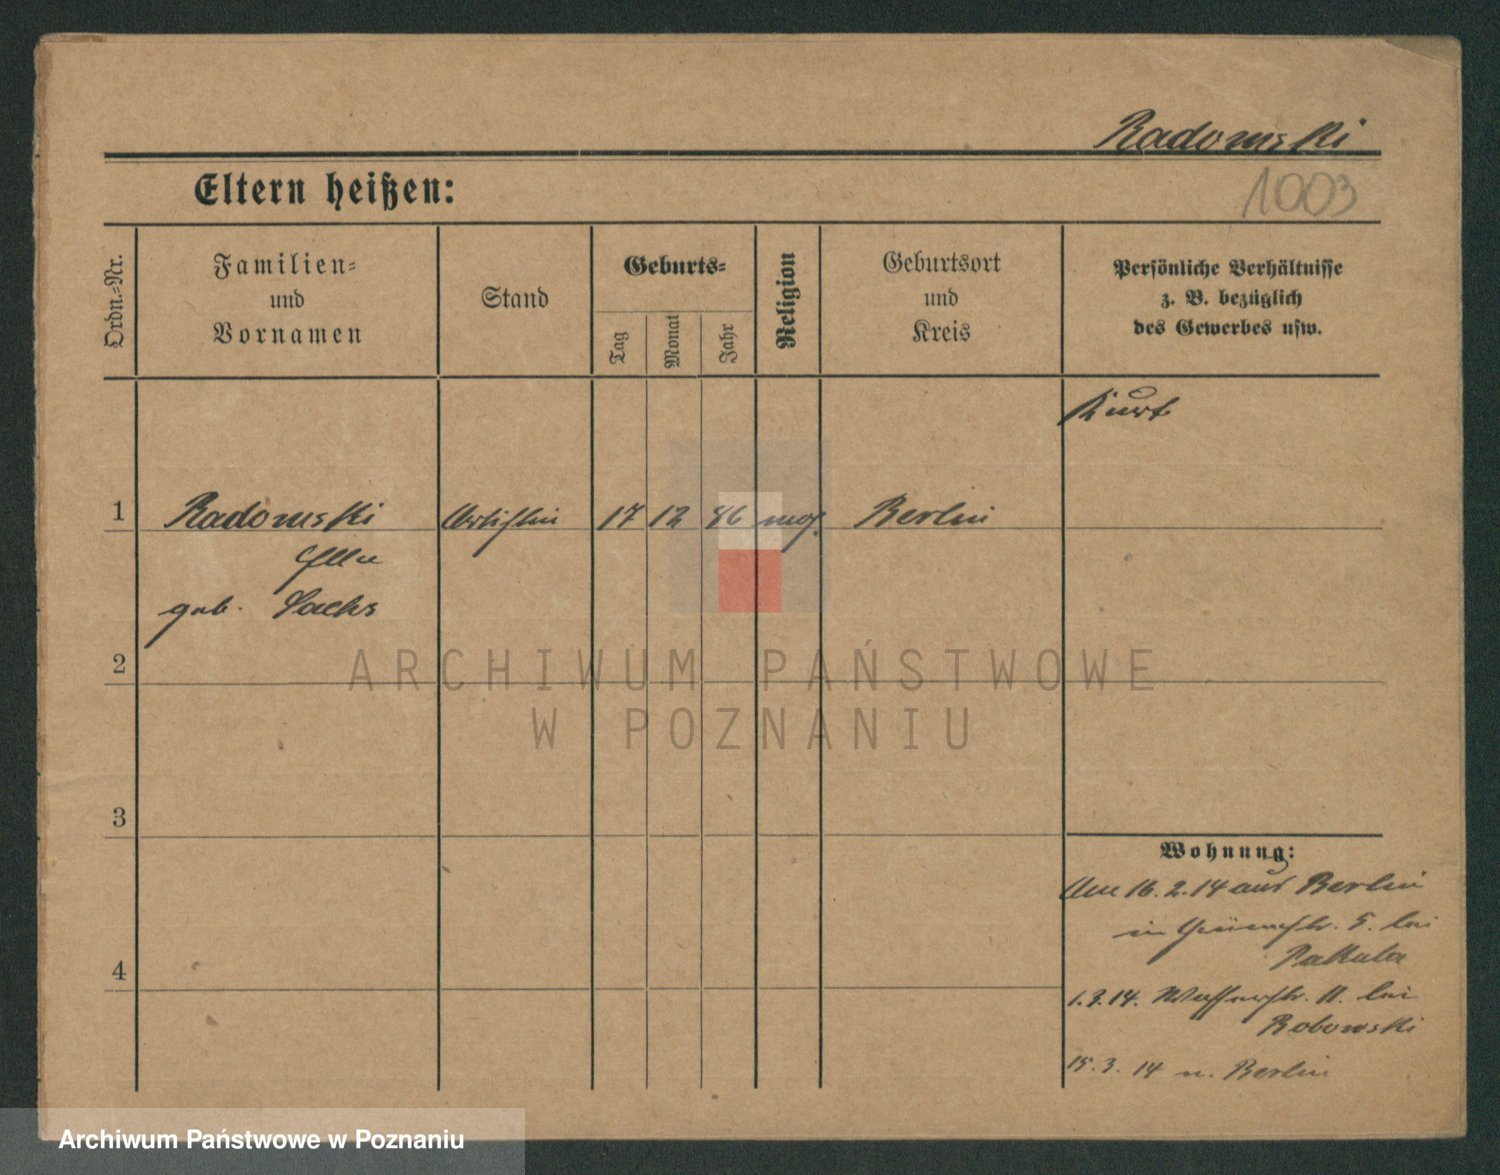 Radomski
1003
Eltern heißen:
Ordn.-Nr.
Familien-
und
Vornamen
Stand
Geburts-
Tag
Monat
Jahr
Religion
Geburtsort
und
Kreis
Persönliche Verhältnisse
z. B. bezüglich
des Gewerbes usw.
Kurt
1 Radomski Artistin 17 12 86 mos. Berlin
Ella
geb. Sachs
2
3
4
Wohnung:
Am 16.2.14 aus Berlin
in 5. bei
Pakula
1.3.14. Wasserstr. 11. bei
Bobowski
15.3.14 n. Berlin
ARCHIWUM PAŃSTWOWE
W POZNANIU
Archiwum Państwowe w Poznaniu